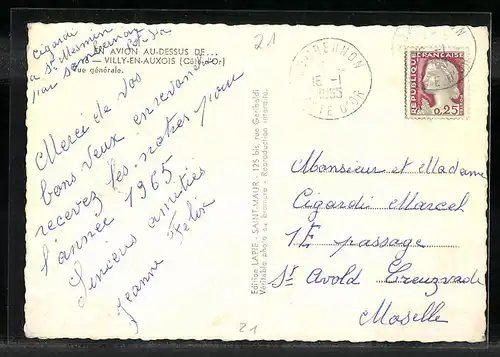 Cigardi
à St Mesmin
par
EN AVION AU-DESSUS DE...
— VILLY-EN-AUXOIS (Côte-d'Or)
Vue générale.
Merci de vos
bons vœux en revanche
recevez les notres pour
l'année 1965
Sincères amitiés
Jeanne Felix
Edition LAPIE - SAINT-MAUR - 125 bis, rue Garibaldi
Véritable photo au bromure - Reproduction interdite.
21
21
15-1
1965
CÔTE D'OR
REPUBLIQUE
FRANÇAISE
0,25
Monsieur et Madame
Cigardi Marcel
1E passage
St Avold Creuzvade
Moselle